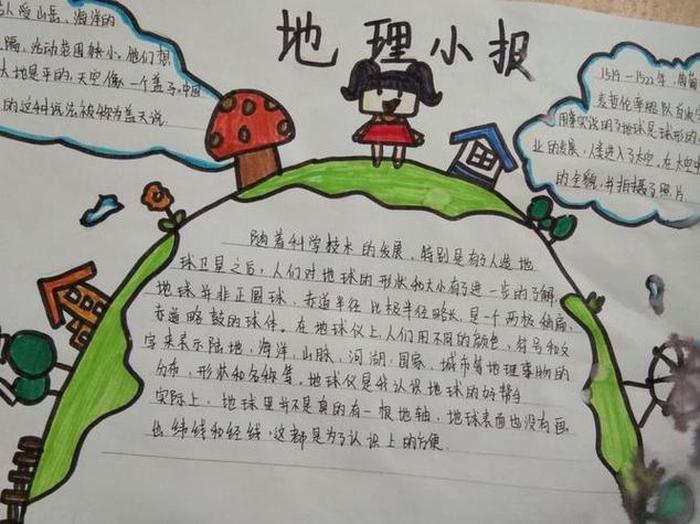 地理小报
人受山岳、海洋的
隔,活动范围狭小。他们想
大地是平的,天空像一个盖子。中国
的这种说法被称为盖天说.
1519—1522年,葡萄
麦哲伦率船队首次
用事实说明了地球是球形的
业的发展,人类进入了太空,在太空
的全貌,并拍摄了照片
随着科学技术的发展,特别是有了人造地
球卫星之后,人们对地球的形状和大小有了进一步的了解.
地球并非正圆球,赤道半径比极半径略长,是一个两极稍扁,
赤道略鼓的球体。在地球仪上,人们用不同的颜色、符号和文
字来表示陆地,海洋,山脉,河湖,国家,城市等地理事物的
分布,形状和名称等。地球仪是我认识地球的好帮手
实际上,地球里并不是真的有一根地轴,地球表面也没有画
出纬线和经线,这都是为了认识上的方便.